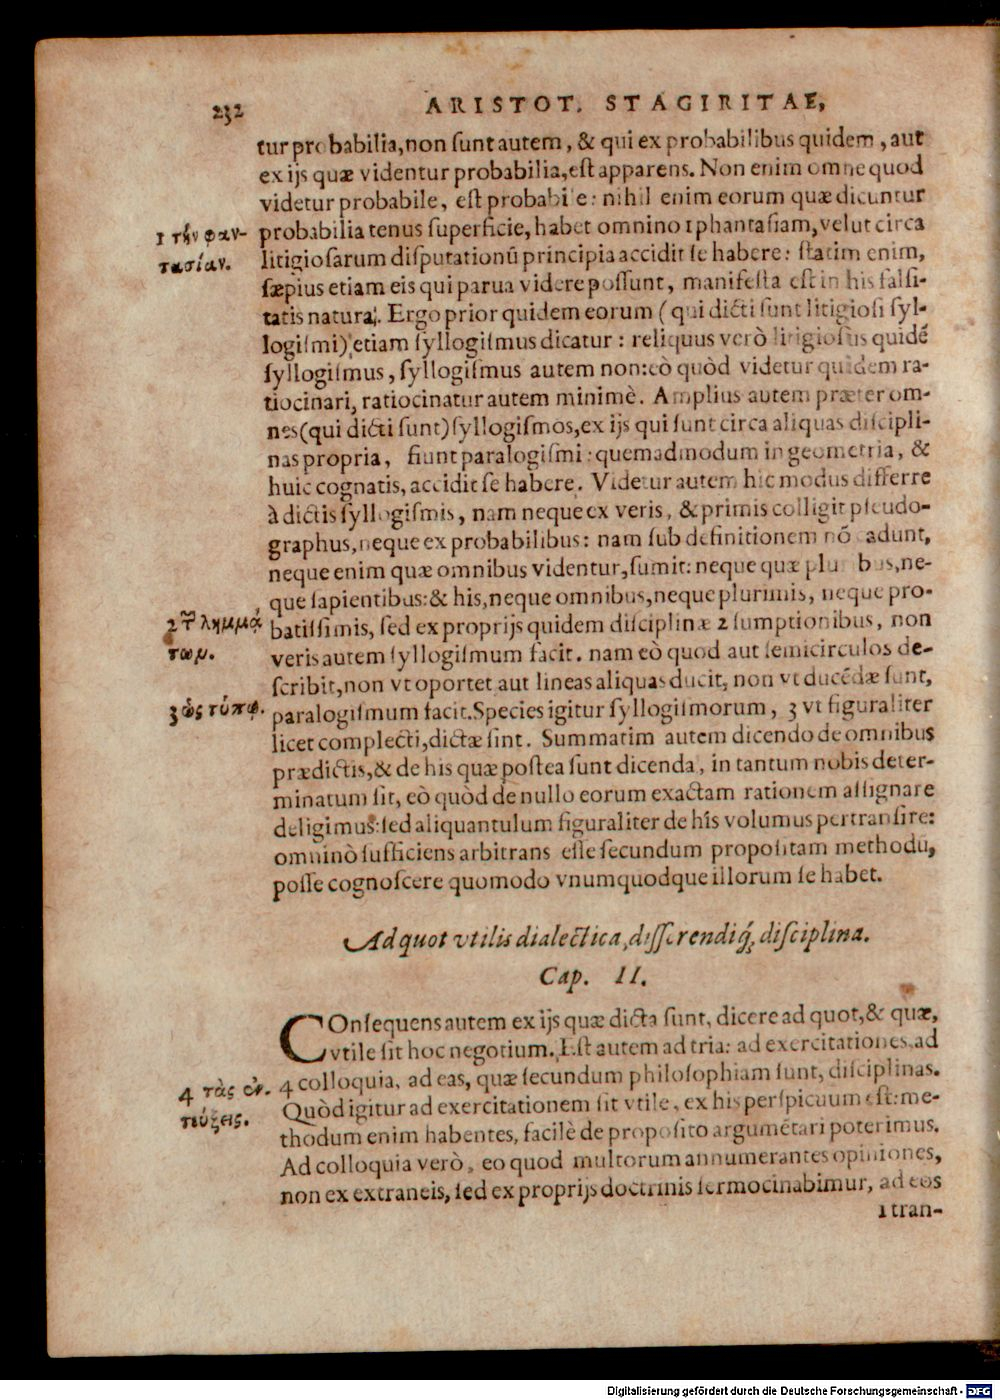 232 ARISTOT. STAGIRITAE,
tur probabilia, non ſunt autem, & qui ex probabilibus quidem, aut
ex ijs quæ videntur probabilia, eſt apparens. Non enim omne quod
videtur probabile, eſt probabile: nihil enim eorum quæ dicuntur
probabilia tenus ſuperficie, habet omnino 1 phantaſiam, velut circa
1 τὴν φαν-
τασίαν.
litigioſarum diſputationū principia accidit ſe habere: ſtatim enim,
ſæpius etiam eis qui parua videre poſſunt, manifeſta eſt in his falſi-
tatis natura. Ergo prior quidem eorum (qui dicti ſunt litigioſi ſyl-
logiſmi) etiam ſyllogiſmus dicatur: reliquus verò litigioſus quidē
ſyllogiſmus, ſyllogiſmus autem non: eò quòd videtur quidem ra-
tiocinari, ratiocinatur autem minimè. Amplius autem præter om-
nes (qui dicti ſunt) ſyllogiſmos, ex ijs qui ſunt circa aliquas diſcipli-
nas propria, fiunt paralogiſmi: quemadmodum in geometria, &
huic cognatis, accidit ſe habere. Videtur autem hic modus differre
à dictis ſyllogiſmis, nam neque ex veris, & primis colligit pſeudo-
graphus, neque ex probabilibus: nam ſub definitionem nō cadunt,
neque enim quæ omnibus videntur, ſumit: neque quæ plu bus, ne-
que ſapientibus: & his, neque omnibus, neque plurimis, neque pro-
batiſſimis, ſed ex proprijs quidem diſciplinæ 2 ſumptionibus, non
2 τῶν λημμά
των.
veris autem ſyllogiſmum facit. nam eò quod aut ſemicirculos de-
ſcribit, non vt oportet aut lineas aliquas ducit, non vt ducēdæ ſunt,
paralogiſmum facit. Species igitur ſyllogiſmorum, 3 vt figuraliter
3 ὡς τύπῳ.
licet complecti, dictæ ſint. Summatim autem dicendo de omnibus
prædictis, & de his quæ poſtea ſunt dicenda, in tantum nobis deter-
minatum ſit, eò quòd de nullo eorum exactam rationem aſſignare
deligimus: ſed aliquantulum figuraliter de his volumus pertranſire:
omninò ſufficiens arbitrans eſſe ſecundum propoſitam methodū,
poſſe cognoſcere quomodo vnumquodque illorum ſe habet.
Ad quot vtilis dialectica, diſſerendiq́; diſciplina.
Cap. II.
COnſequens autem ex ijs quæ dicta ſunt, dicere ad quot, & quæ,
vtile ſit hoc negotium. Eſt autem ad tria: ad exercitationes, ad
4 colloquia, ad eas, quæ ſecundum philoſophiam ſunt, diſciplinas.
4 τὰς ἐν-
τεύξεις.
Quòd igitur ad exercitationem ſit vtile, ex his perſpicuum eſt: me-
thodum enim habentes, facilè de propoſito argumētari poterimus.
Ad colloquia verò, eo quod multorum annumerantes opiniones,
non ex extraneis, ſed ex proprijs doctrinis ſermocinabimur, ad eos
1 tran-
Digitalisierung gefördert durch die Deutsche Forschungsgemeinschaft - DFG